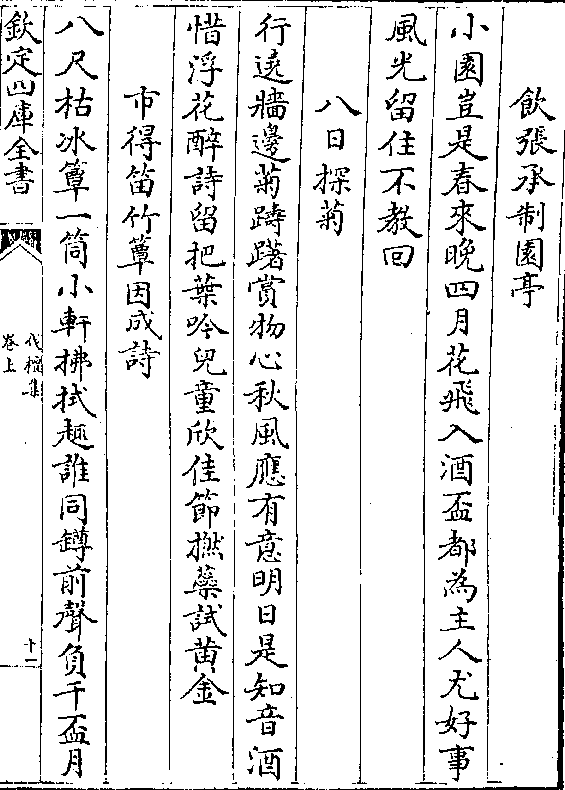 飲張承制園亭
小園豈是春來晚四月花飛入酒盃都為主人尤好事
風光留住不教回
八日探菊
行遶牆邊菊躊躇賞物心秋風應有意明日是知音酒
惜浮花醉詩留把葉吟兒童欣佳節撚蘂試黄金
市得笛竹簟因成詩
八尺枯冰簟一筒小軒拂拭趣誰同罇前聲負千盃月
欽定四庫全書
伐檀集
卷上
十二